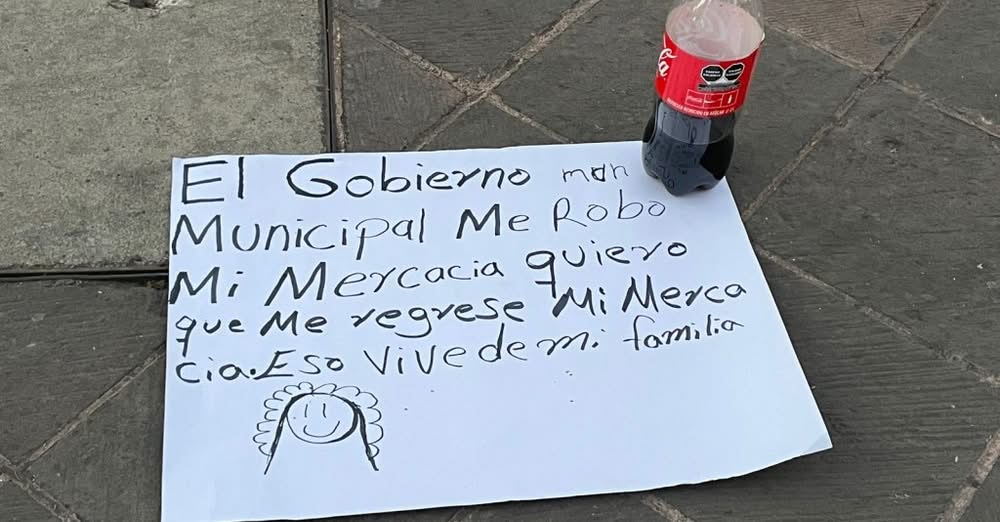 El Gobierno mun
Municipal Me Robo
Mi Mercacia quiero
que Me regrese Mi Merca
cia. Eso Vive de mi familia